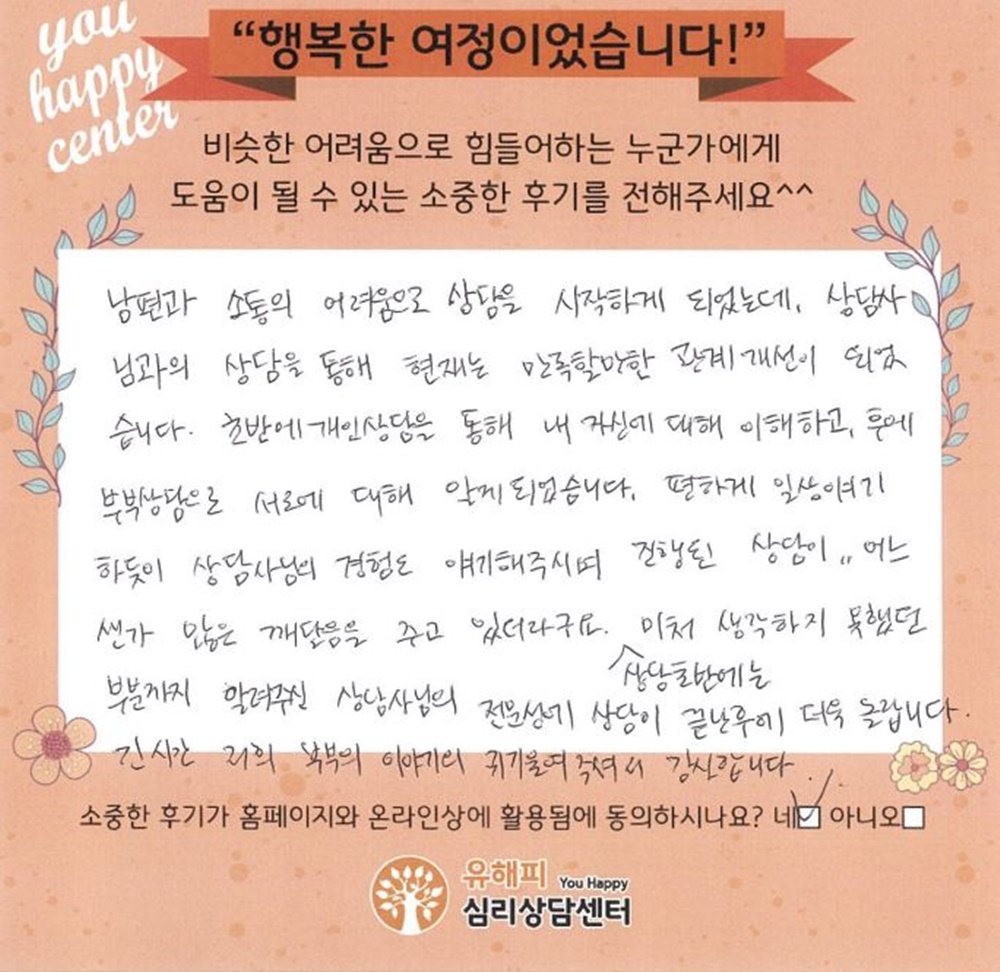 you
happy
center
“행복한 여정이었습니다!”
비슷한 어려움으로 힘들어하는 누군가에게
도움이 될 수 있는 소중한 후기를 전해주세요^^
남편과 소통의 어려움으로 상담을 시작하게 되었는데, 상담사
님과의 상담을 통해 현재는 만족할만한 관계개선이 되었
습니다. 초반에 개인상담을 통해 내 자신에 대해 이해하고, 후에
부부상담으로 서로에 대해 알게 되었습니다. 편하게 일상이야기
하듯이 상담사님의 경험도 얘기해주시며 진행된 상담이,, 어느
샌가 많은 깨달음을 주고 있더라구요. 미처 생각하지 못했던
상담초반에는
부분까지 알려주신 상담사님의 전문성에 상담이 끝난후에 더욱 놀랍니다.
긴 시간 저희 부부의 이야기에 귀기울여 주셔서 감사합니다.
소중한 후기가 홈페이지와 온라인상에 활용됨에 동의하시나요? 네☑ 아니오☐
유해피 You Happy
심리상담센터